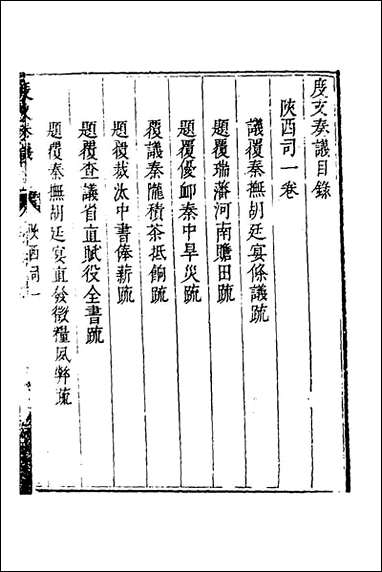 度支奏議目錄
陝西司一卷
議覆秦撫胡廷宴條議疏
題覆瑞藩河南贍田疏
題覆優卹秦中旱災疏
覆議秦隴積茶抵餉疏
題覆裁汰中書俸薪疏
題覆查議省直賦役全書疏
題覆秦撫胡廷宴直發徵糧夙弊疏
陝西司一